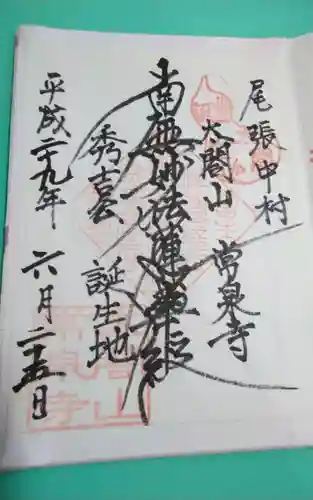 尾張中村
太閤山 常泉寺
南無妙法蓮華経
秀吉公 誕生地
平成二十九年 六月二十五日